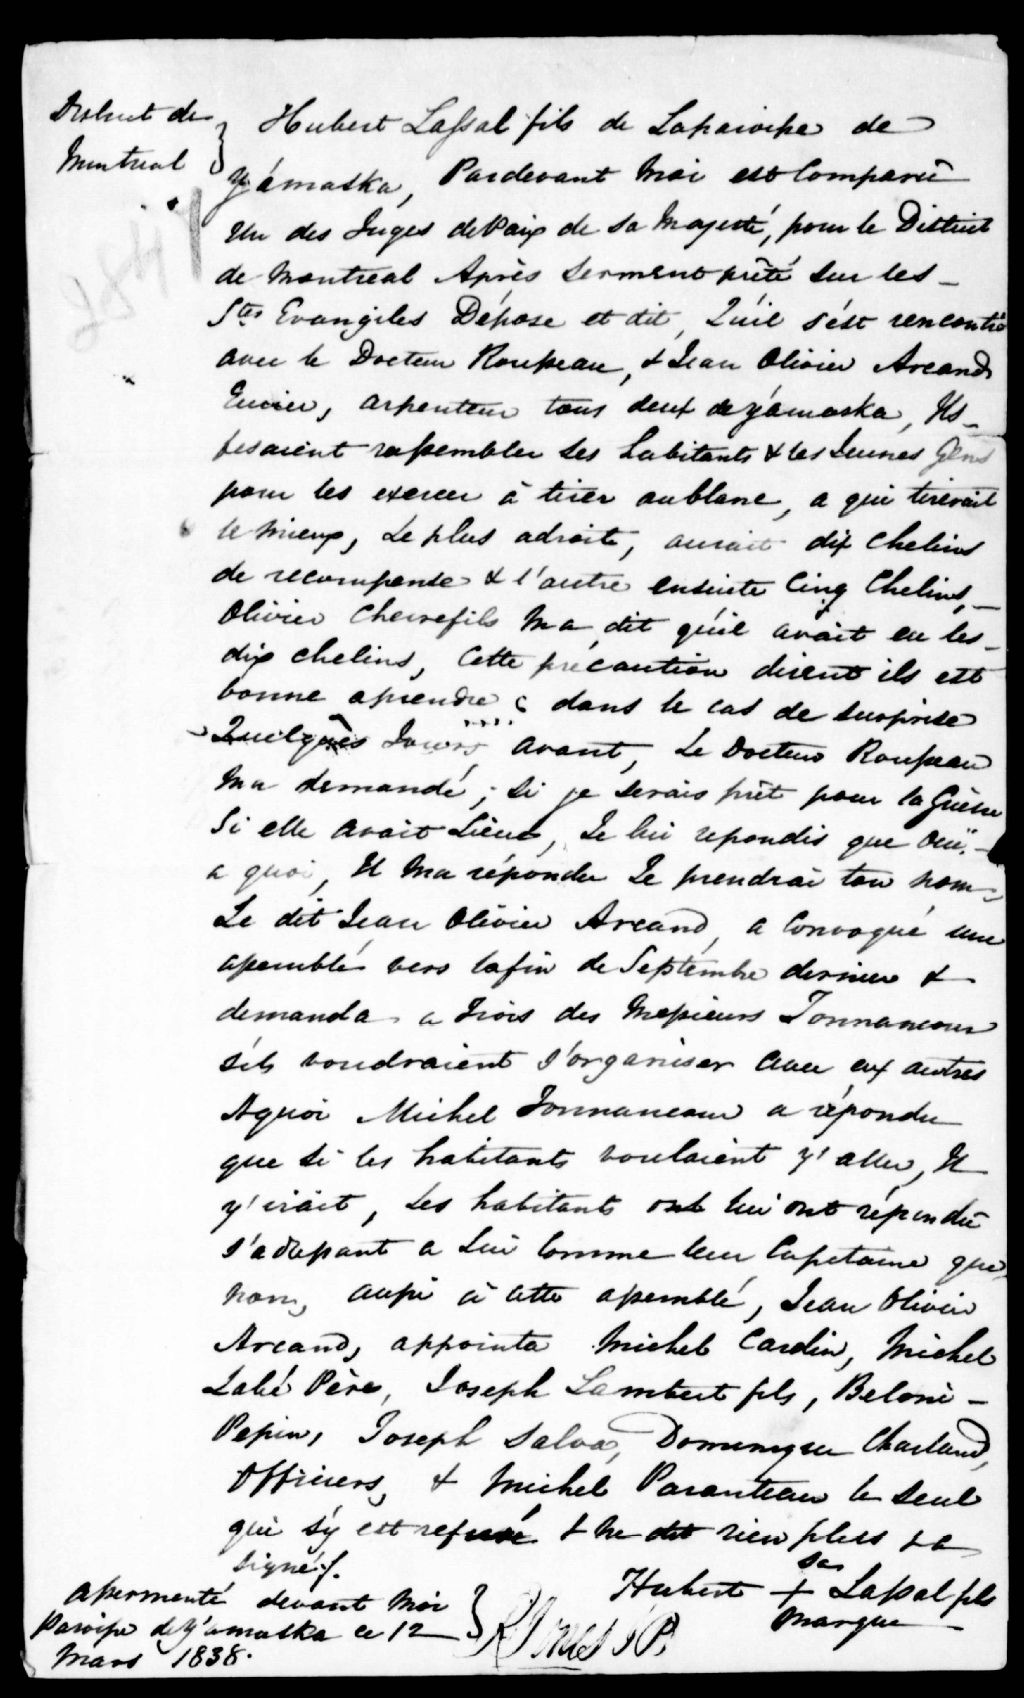 District de
Montreal
Hubert Lassal fils de Laparoisse de
Yámaska, Pardevant Moi est Comparu
Un des Juges de Paix de Sa Majesté, pour le District
de Montreal Après Serment prêté Sur les
Stes Evangiles Dépose et dit, Qu'il s'ést rencontré
avec le Docteur Rousseau, & Jean Olivier Arcand
Ecuier, arpenteur tous deux de yámaska, Ils
fesaient rassembler les habitants & les Jeunes Gens
pour les exercer à tirer aublanc, a qui tirerait
le mieux, Le plus adroite, aurait dix Chelins
de recompense & l'autre ensuite Cinq Chelins,
Olivier Chevrefils M'a dit qu'il avait eu les
dix chelins, Cette précaution dirent ils est
bonne aprendre dans le cas de surprise
Quelques Jours avant, Le Docteur Rousseau
M'a demandé, Si je serais prêt pour la Guèrre
Si elle avait Lieue, Je lui repondis que Oui,
a quoi, Il M'a répondu Je prendrai ton nom,
Le dit Jean Olivier Arcand, a Convoqué une
assemblé vers lafin de Septembre dernier &
demanda a trois des Messieurs Tonnancour
s'ils voudraient s'organiser avec eux autres
Aquoi Michel Tonnancour a répondu
que si les habitants voulaient y'aller, Il
y'irait, Les habitants ont lui ont répondu
s'adressant a Lui Comme leur Capitaine que
non, aussi à cette assemblé, Jean Olivier
Arcand, appointa Michel Cardin, Michel
Labé Père, Joseph Lambert fils, Beloni
Pepin, Joseph Salva, Dominique Charland,
Officiers, & Michel Paranteau le Seul
qui s'y est refusé & ne dit rien pluss & a
signé.
Hubert + Lassal fils
sa
Marque
Assermenté devant Moi
Paroisse de Y'amaska ce 12
Mars 1838.
JP